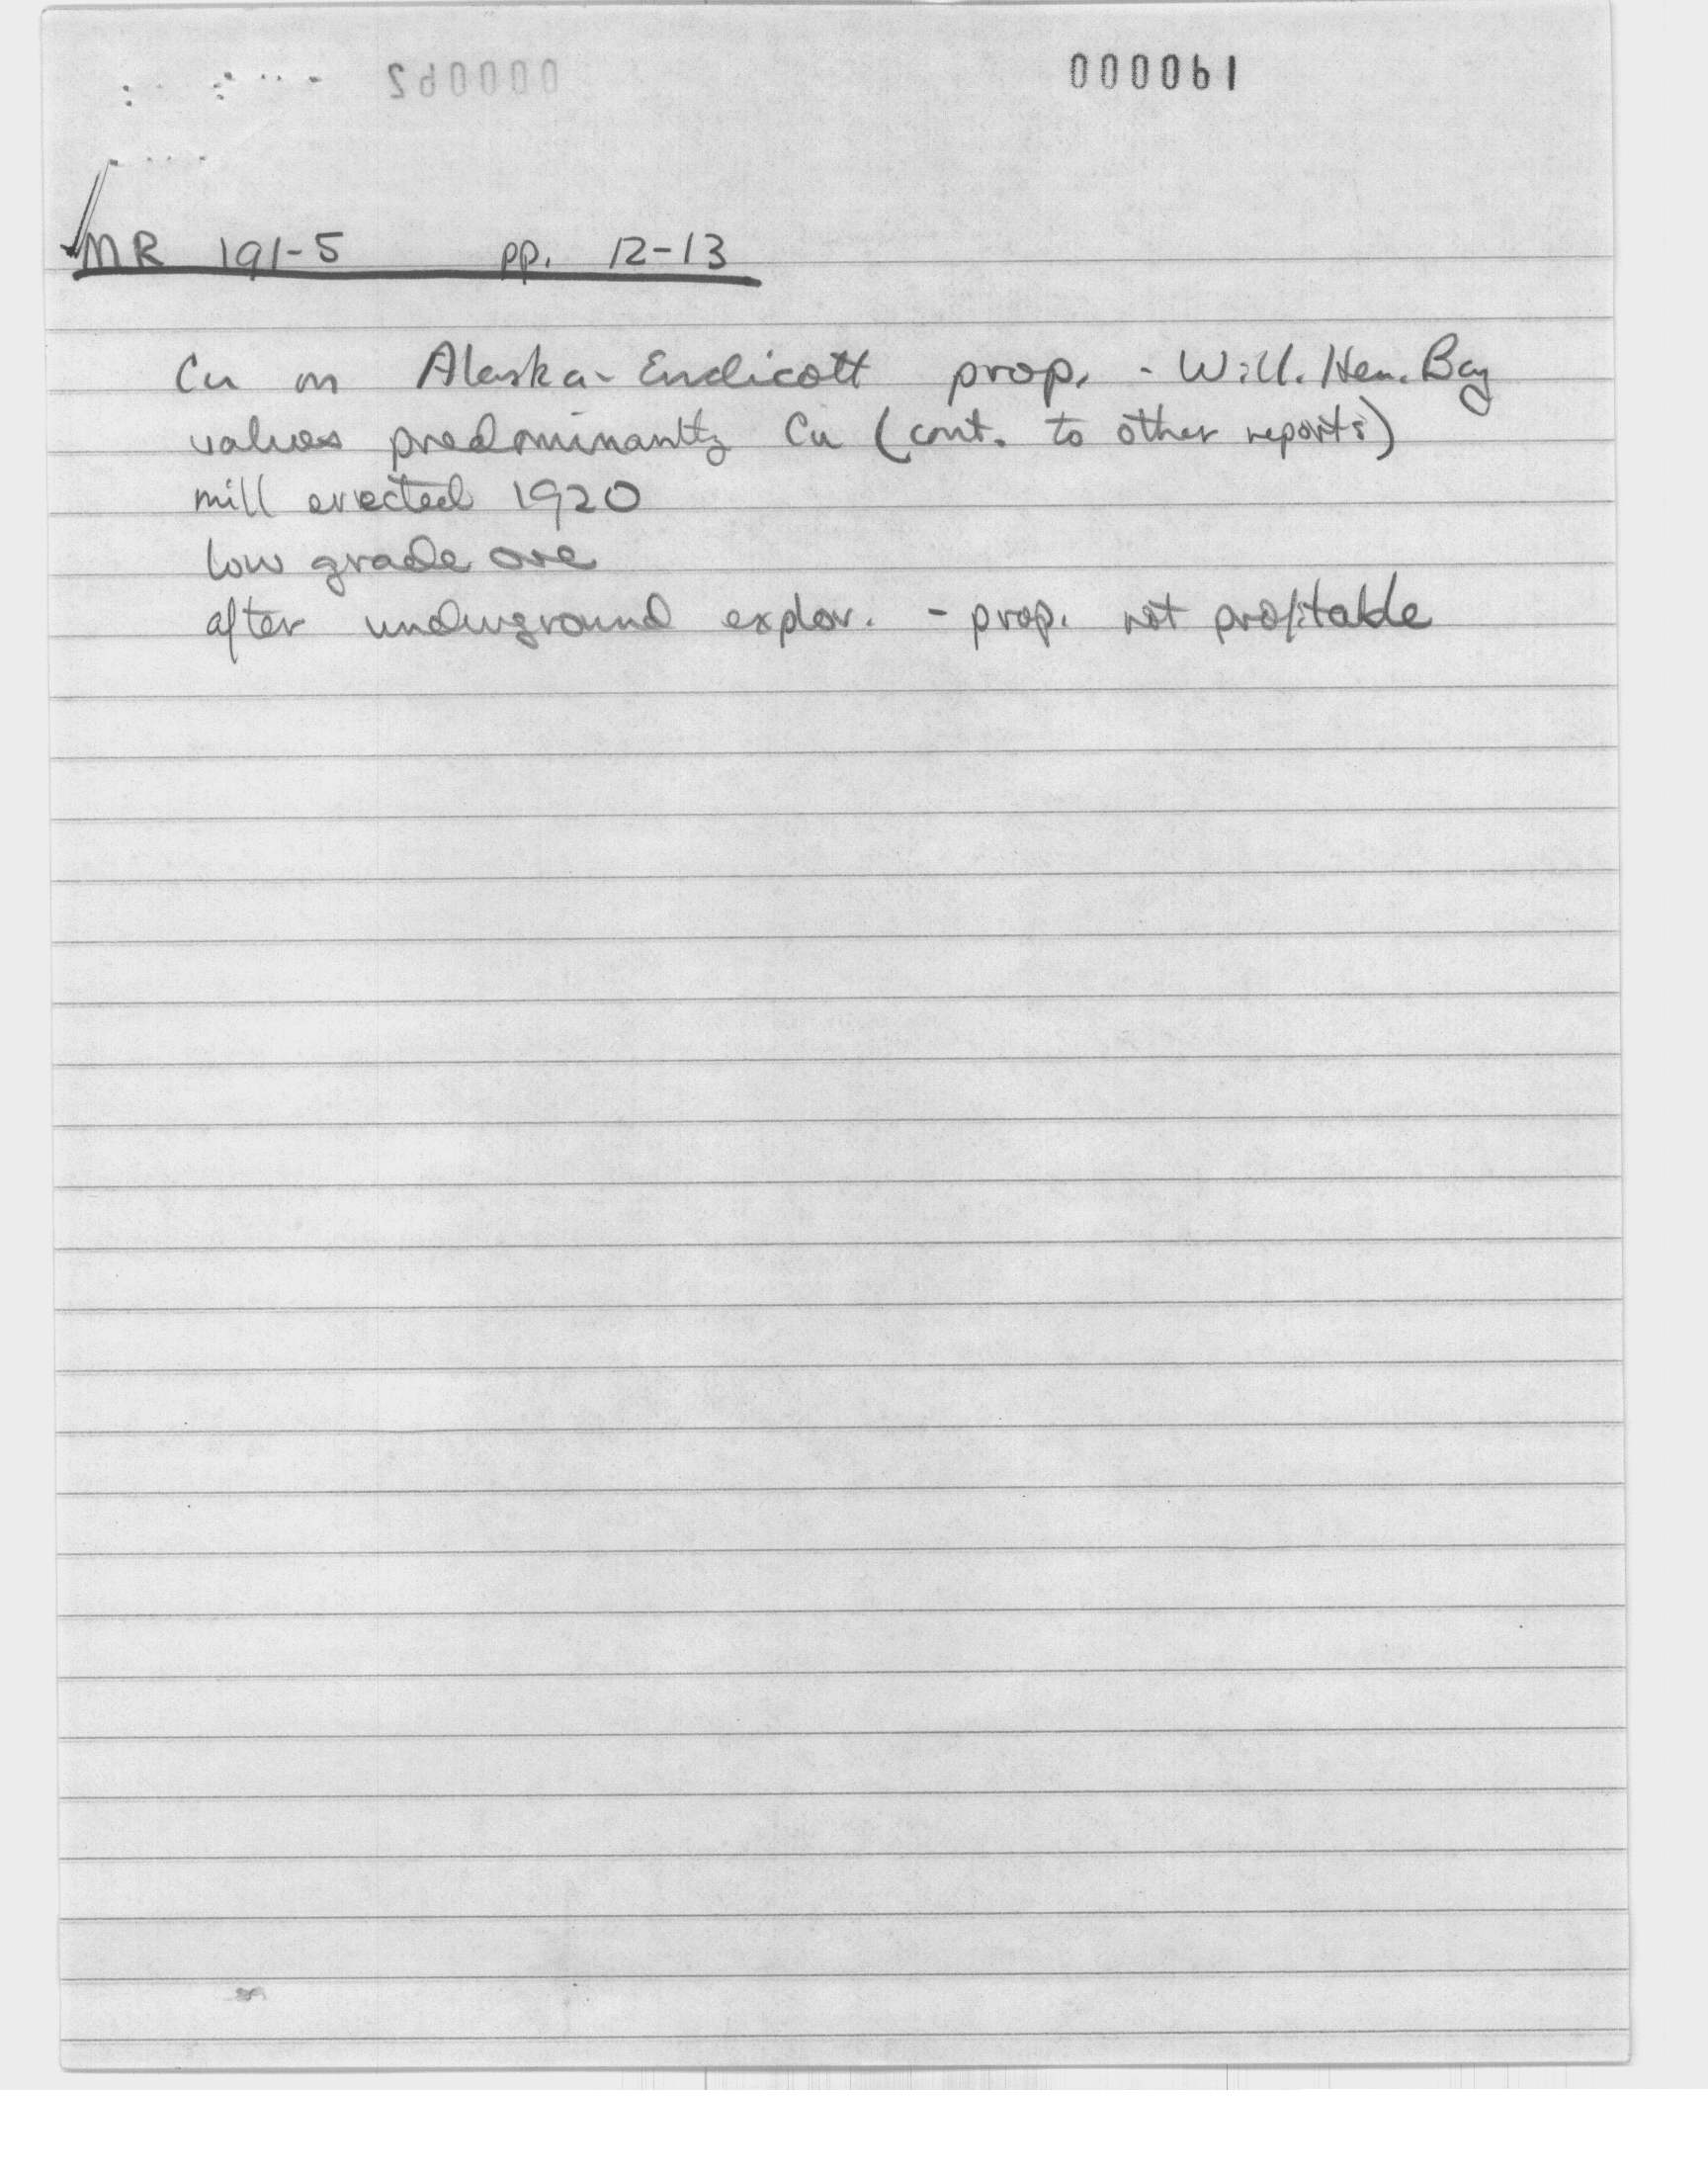 000061
MR 191-5 pp. 12-13
Cu on Alaska-Endicott prop. - Will. Hen. Bay
values predominantly Cu (cont. to other reports)
mill erected 1920
low grade ore
after underground explor. - prop. not profitable